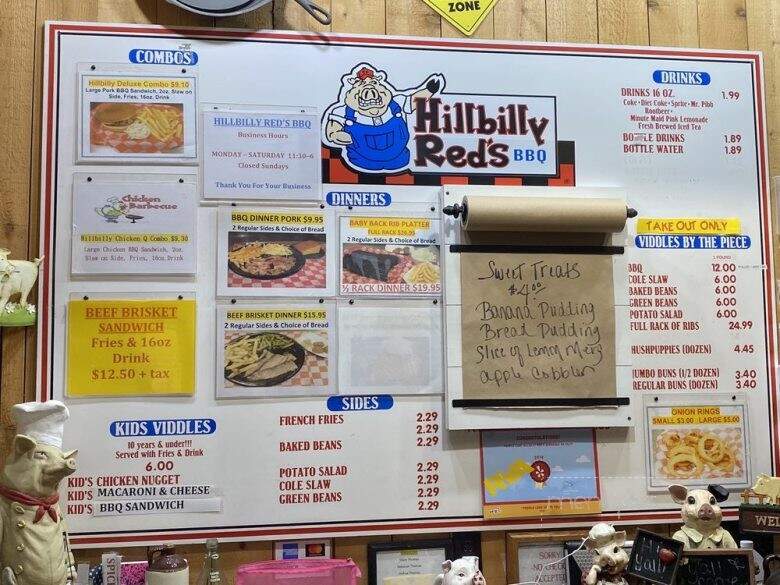 ZONE
COMBOS
Hillbilly Deluxe Combo $9.10
Large Pork BBQ Sandwich, 2oz. Slaw on
Side, Fries, 16oz. Drink
HILLBILLY RED'S BBQ
Business Hours
MONDAY - SATURDAY 11:30-6
Closed Sundays
Thank You For Your Business
Chicken
Barbecue
Hillbilly Chicken Q Combo $9.30
Large Chicken BBQ Sandwich, 2oz.
Slaw on Side, Fries, 16oz. Drink
BEEF BRISKET
SANDWICH
Fries & 16oz
Drink
$12.50 + tax
Hillbilly
Red's BBQ
DINNERS
BBQ DINNER PORK $9.95
2 Regular Sides & Choice of Bread
BABY BACK RIB PLATTER
FULL RACK $26.95
2 Regular Sides & Choice of Bread
½ RACK DINNER $19.95
BEEF BRISKET DINNER $15.95
2 Regular Sides & Choice of Bread
Sweet Treats
$4.00
Banana Pudding
Bread Pudding
Slice of Lemon Merz
apple Cobbler
DRINKS
DRINKS 16 OZ. 1.99
Coke • Diet Coke • Sprite • Mr. Pibb
Rootbeer •
Minute Maid Pink Lemonade
Fresh Brewed Iced Tea
BOTTLE DRINKS 1.89
BOTTLE WATER 1.89
TAKE OUT ONLY
VIDDLES BY THE PIECE
1 POUND
BBQ 12.00
COLE SLAW 6.00
BAKED BEANS 6.00
GREEN BEANS 6.00
POTATO SALAD 6.00
FULL RACK OF RIBS 24.99
HUSHPUPPIES (DOZEN) 4.45
JUMBO BUNS (1/2 DOZEN) 3.40
REGULAR BUNS (DOZEN) 3.40
ONION RINGS
SMALL $3.00 LARGE $5.00
KIDS VIDDLES
10 years & under!!!
Served with Fries & Drink
6.00
KID'S CHICKEN NUGGET
KID'S MACARONI & CHEESE
KID'S BBQ SANDWICH
SIDES
FRENCH FRIES 2.29
2.29
BAKED BEANS 2.29
POTATO SALAD 2.29
COLE SLAW 2.29
GREEN BEANS 2.29
CONGRATULATIONS!
SPICE
SORRY
NO CHECK
ACCEPTED
Hi
y'all
WEL